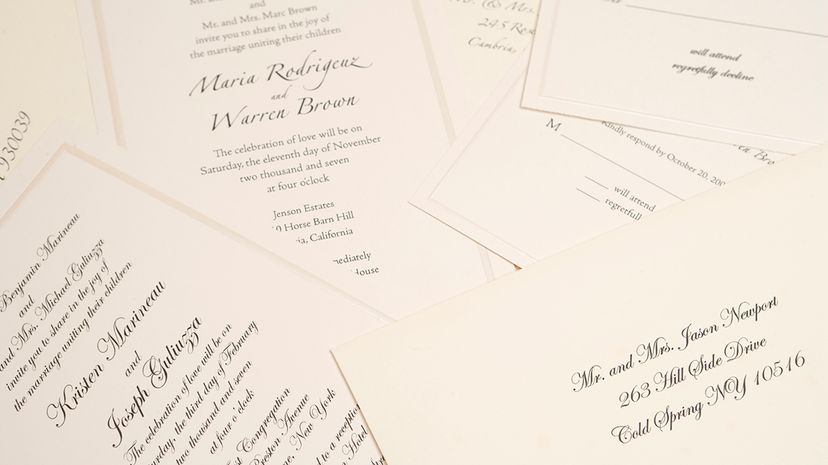 Mr. and Mrs. Marc Brown
invite you to share in the joy of
the marriage uniting their children
Maria Rodrigeuz
and
Warren Brown
The celebration of love will be on
Saturday, the eleventh day of November
two thousand and seven
at four o'clock
Jenson Estates
Horse Barn Hill
California
House
245
Cambria,
will attend
regretfully decline
M
Kindly respond by October 20,
will attend
930039
Benjamin Marineau
and
and Mrs. Michael Guliuzza
invite you to share in the joy of
the marriage uniting their children
Kristen Marineau
and
Joseph Guliuzza
The celebration of love will be on
the third day of February
two thousand and seven
at four o'clock
Congregation
Avenue
New York
to a reception
Hotel
Mr. and Mrs. Jason Newport
263 Hill Side Drive
Cold Spring NY 10516